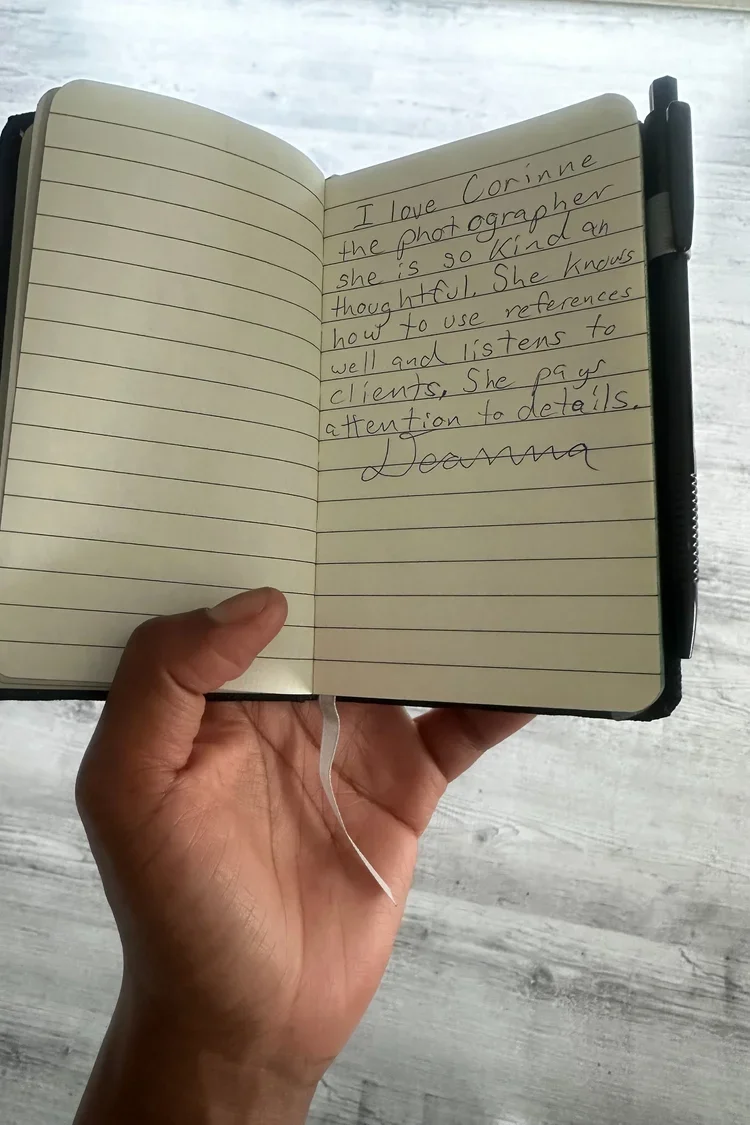 I love Corinne
the photographer
she is so kind an
thoughtful. She knows
how to use references
well and listens to
clients. She pays
attention to details.
Deanna